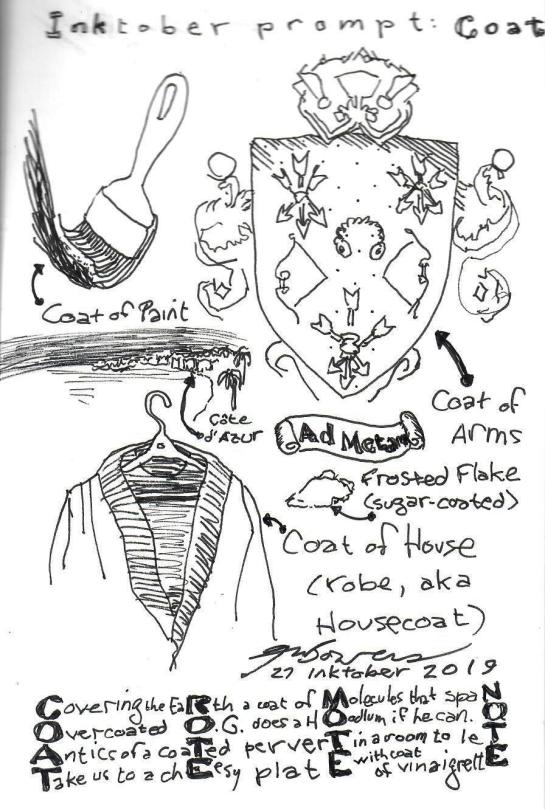 Inktober prompt: Coat
Coat of Paint
Côte
d'Azur
Coat of
Arms
Ad Metam
Frosted Flake
(sugar-coated)
Coat of House
(robe, aka
Housecoat)
27 inktober 2019
Covering the EaRth a coat of Molecules that spaN
Overcoated O.G. does a HOodlum if he can. O
Antics of a coaTed perverT in a room to leT
Take us to a chEesy platE with coat of vinaigrettE